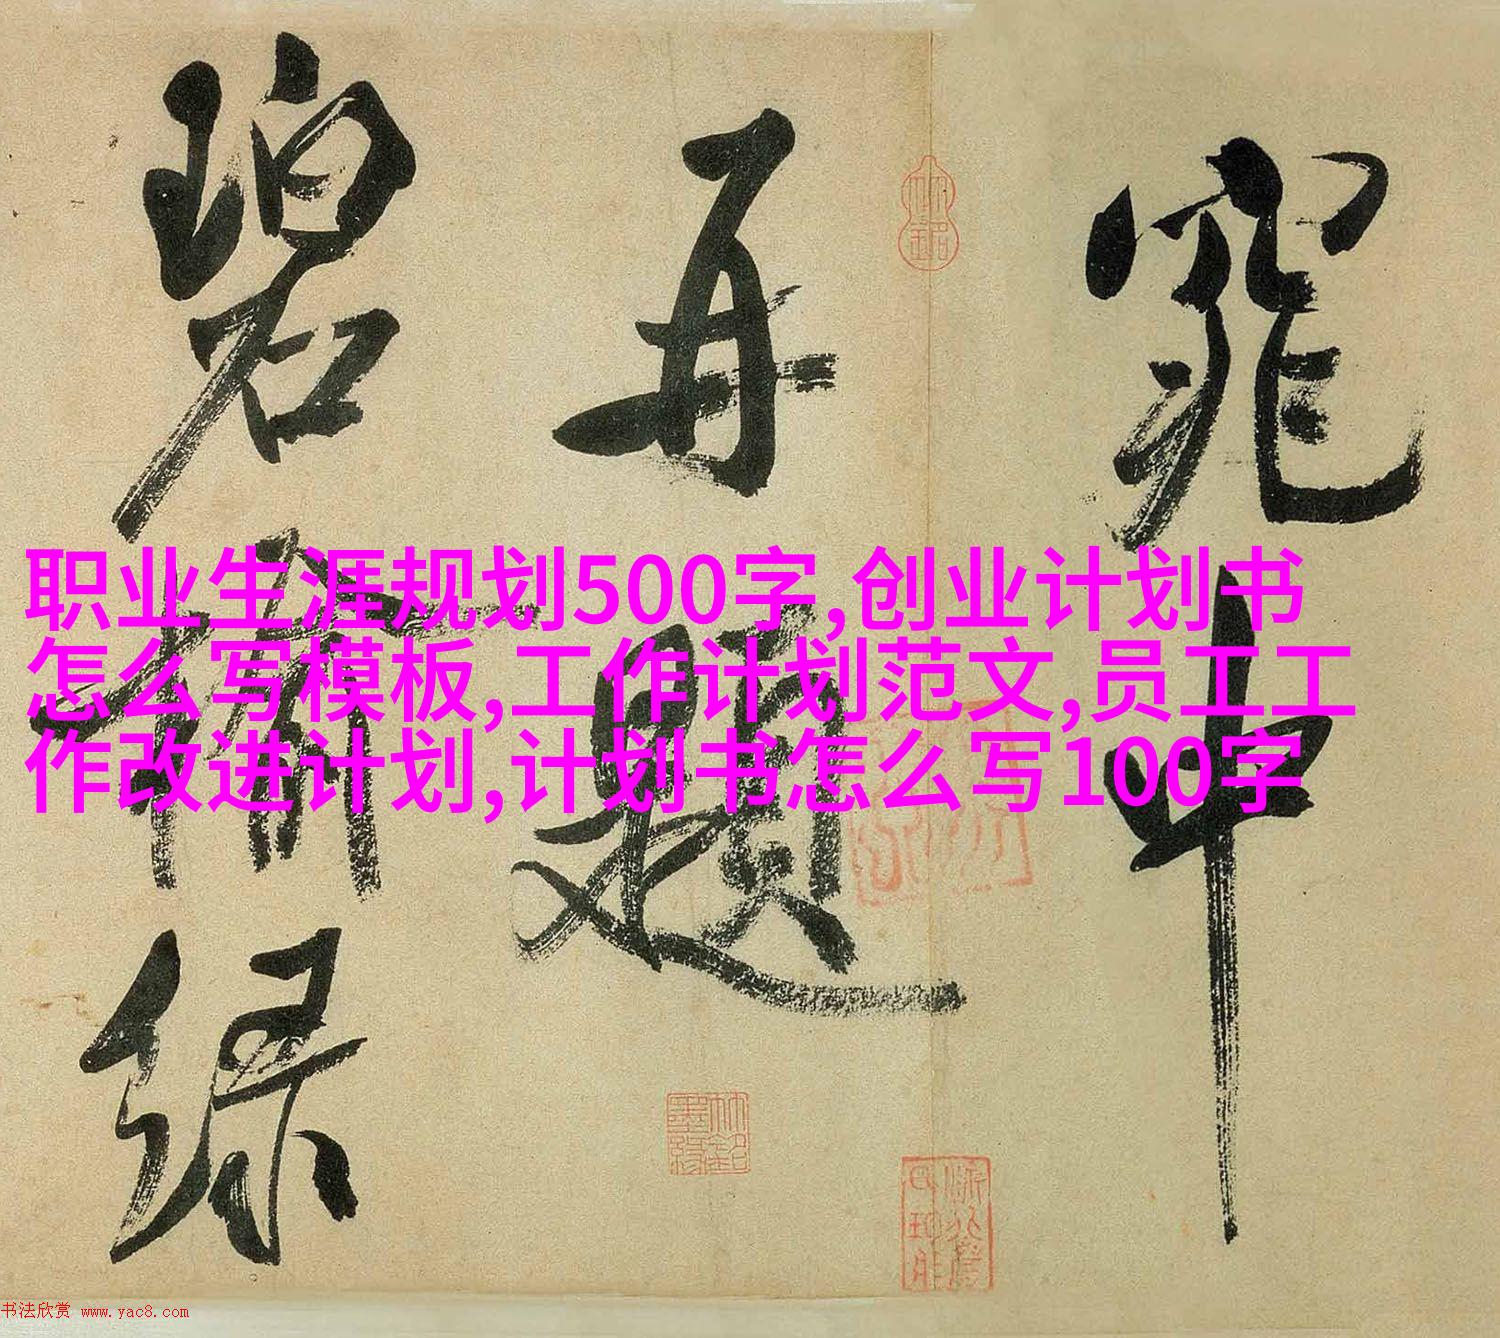 窕中
再题
碧揄绿
职业生涯规划500字,创业计划书
怎么写模板,工作计划范文,员工工
作改进计划,计划书怎么写100字
书法欣赏 www.yac8.com